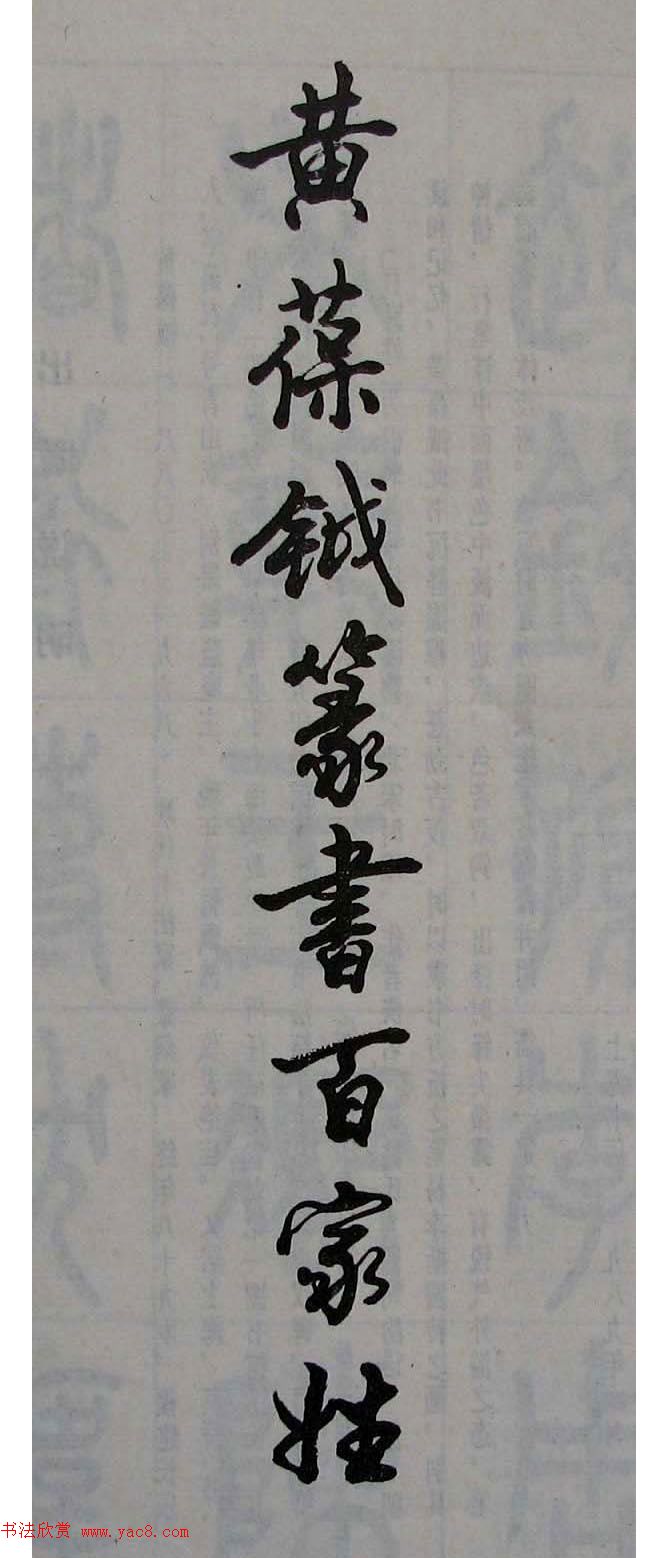 黄葆鉞篆書百家姓
书法欣赏 www.yac8.com